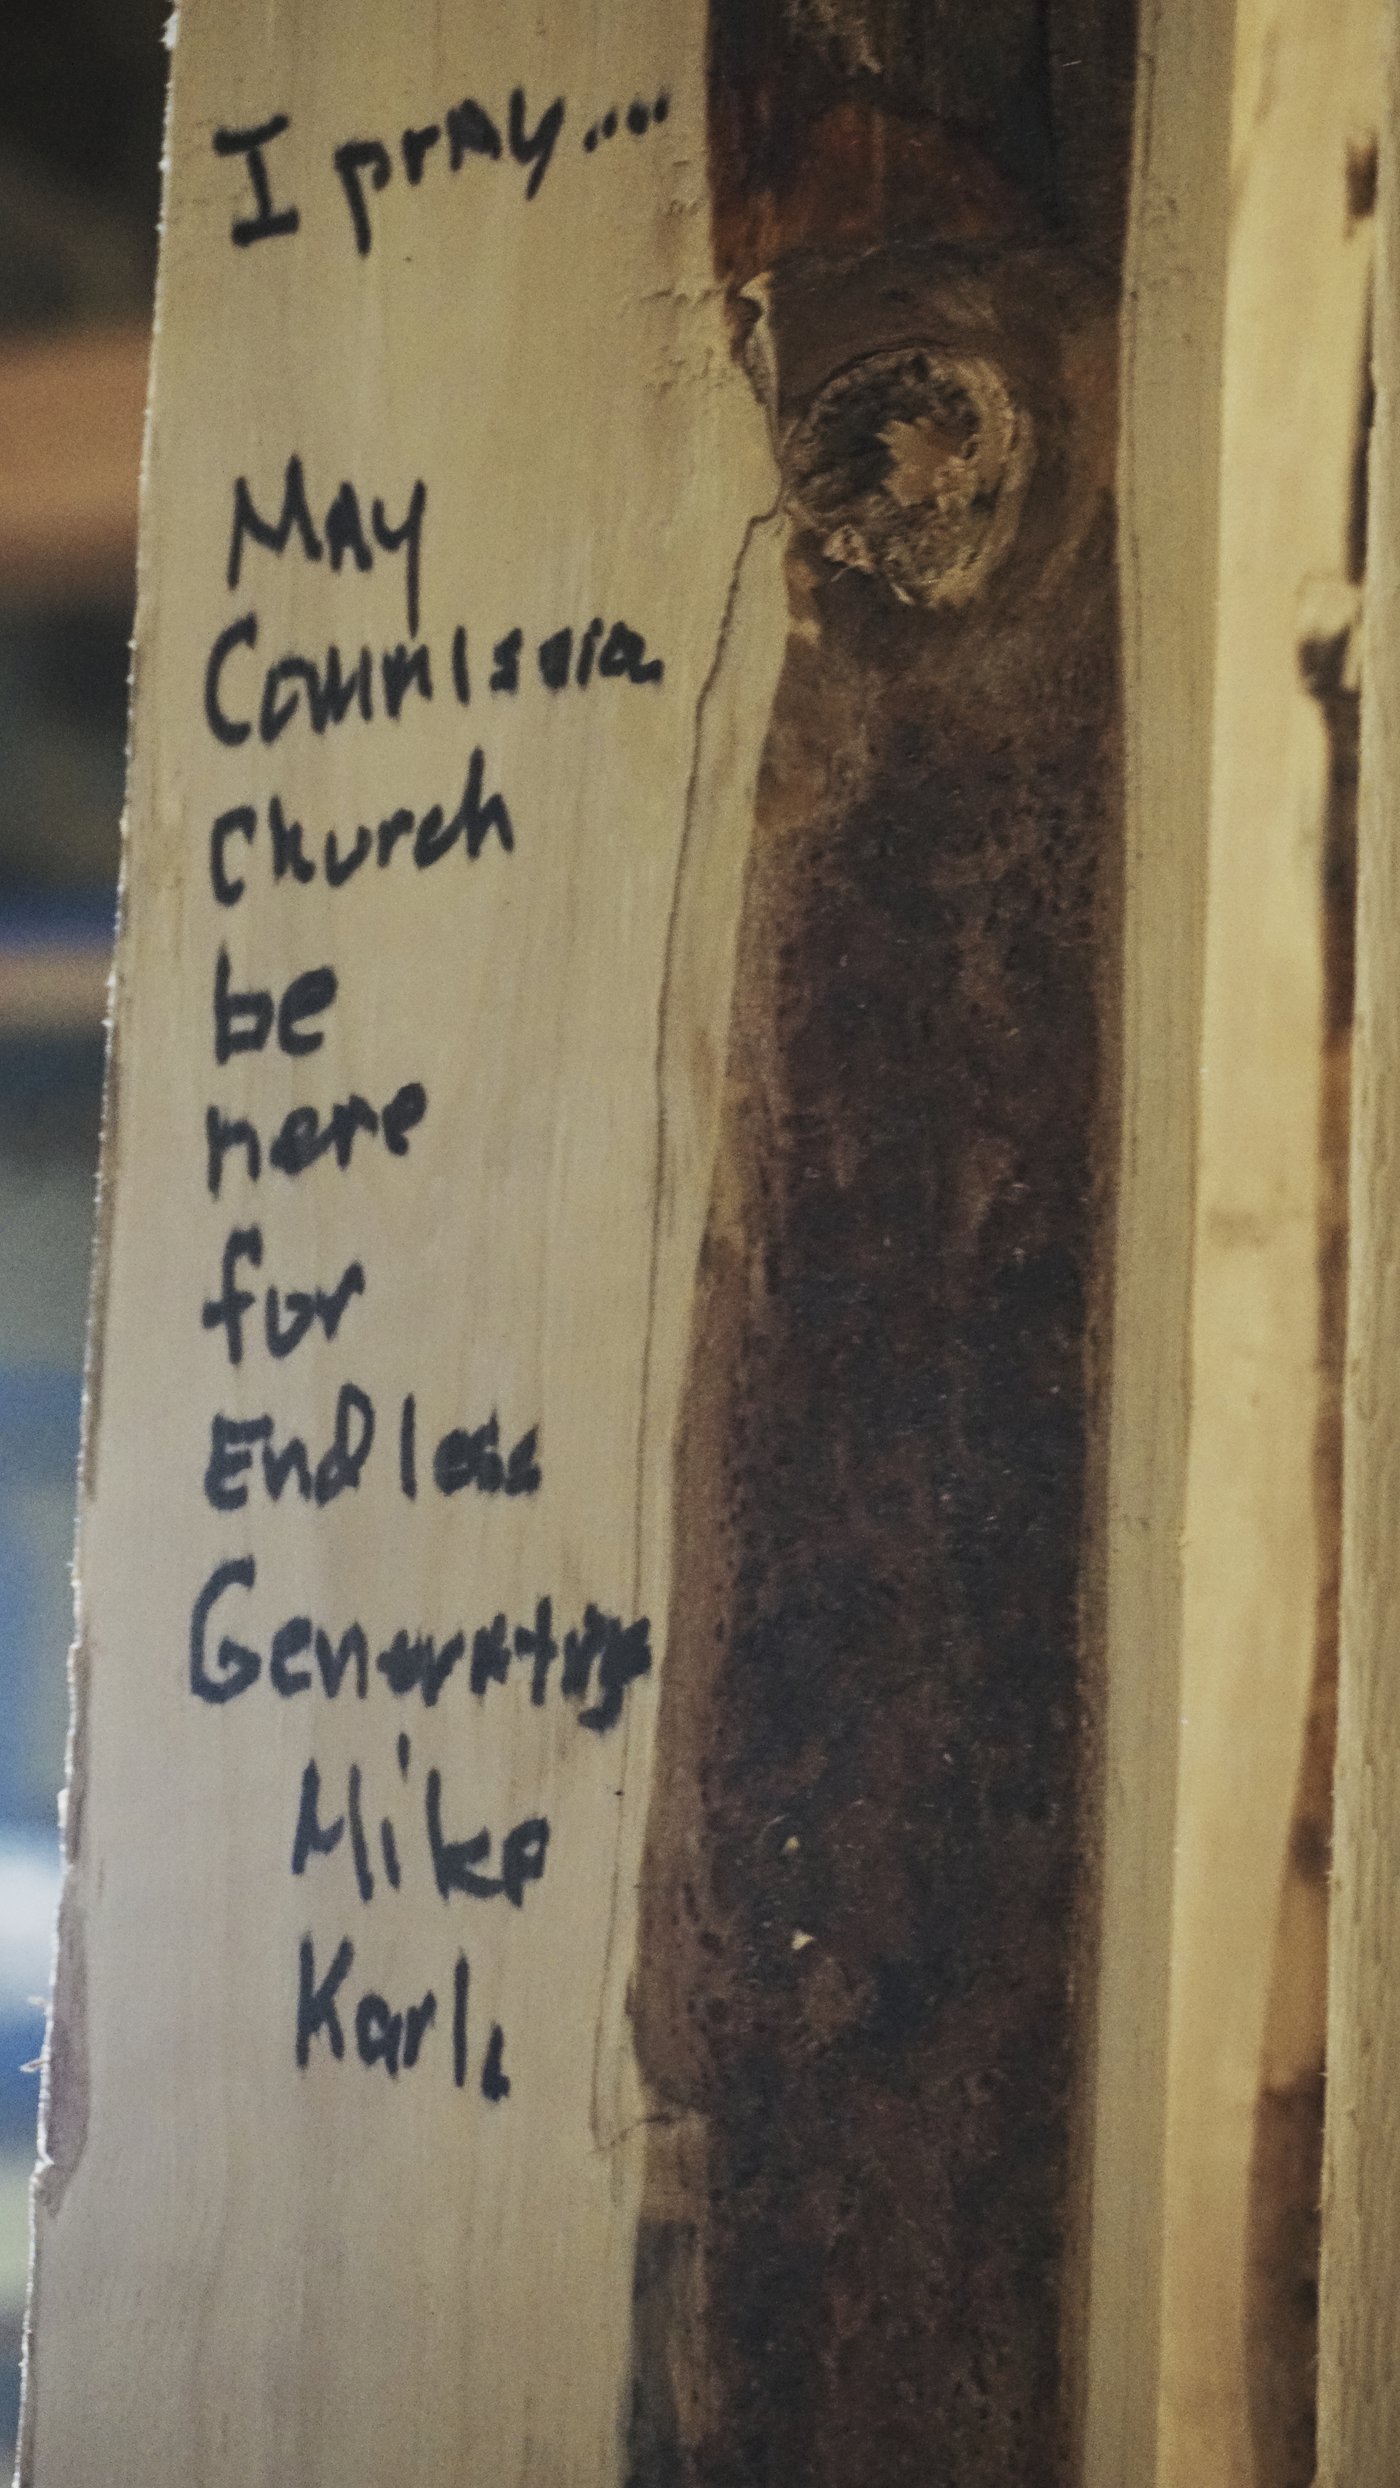 I pray...
May
Commission
Church
be
here
for
Endless
Mike
Karl